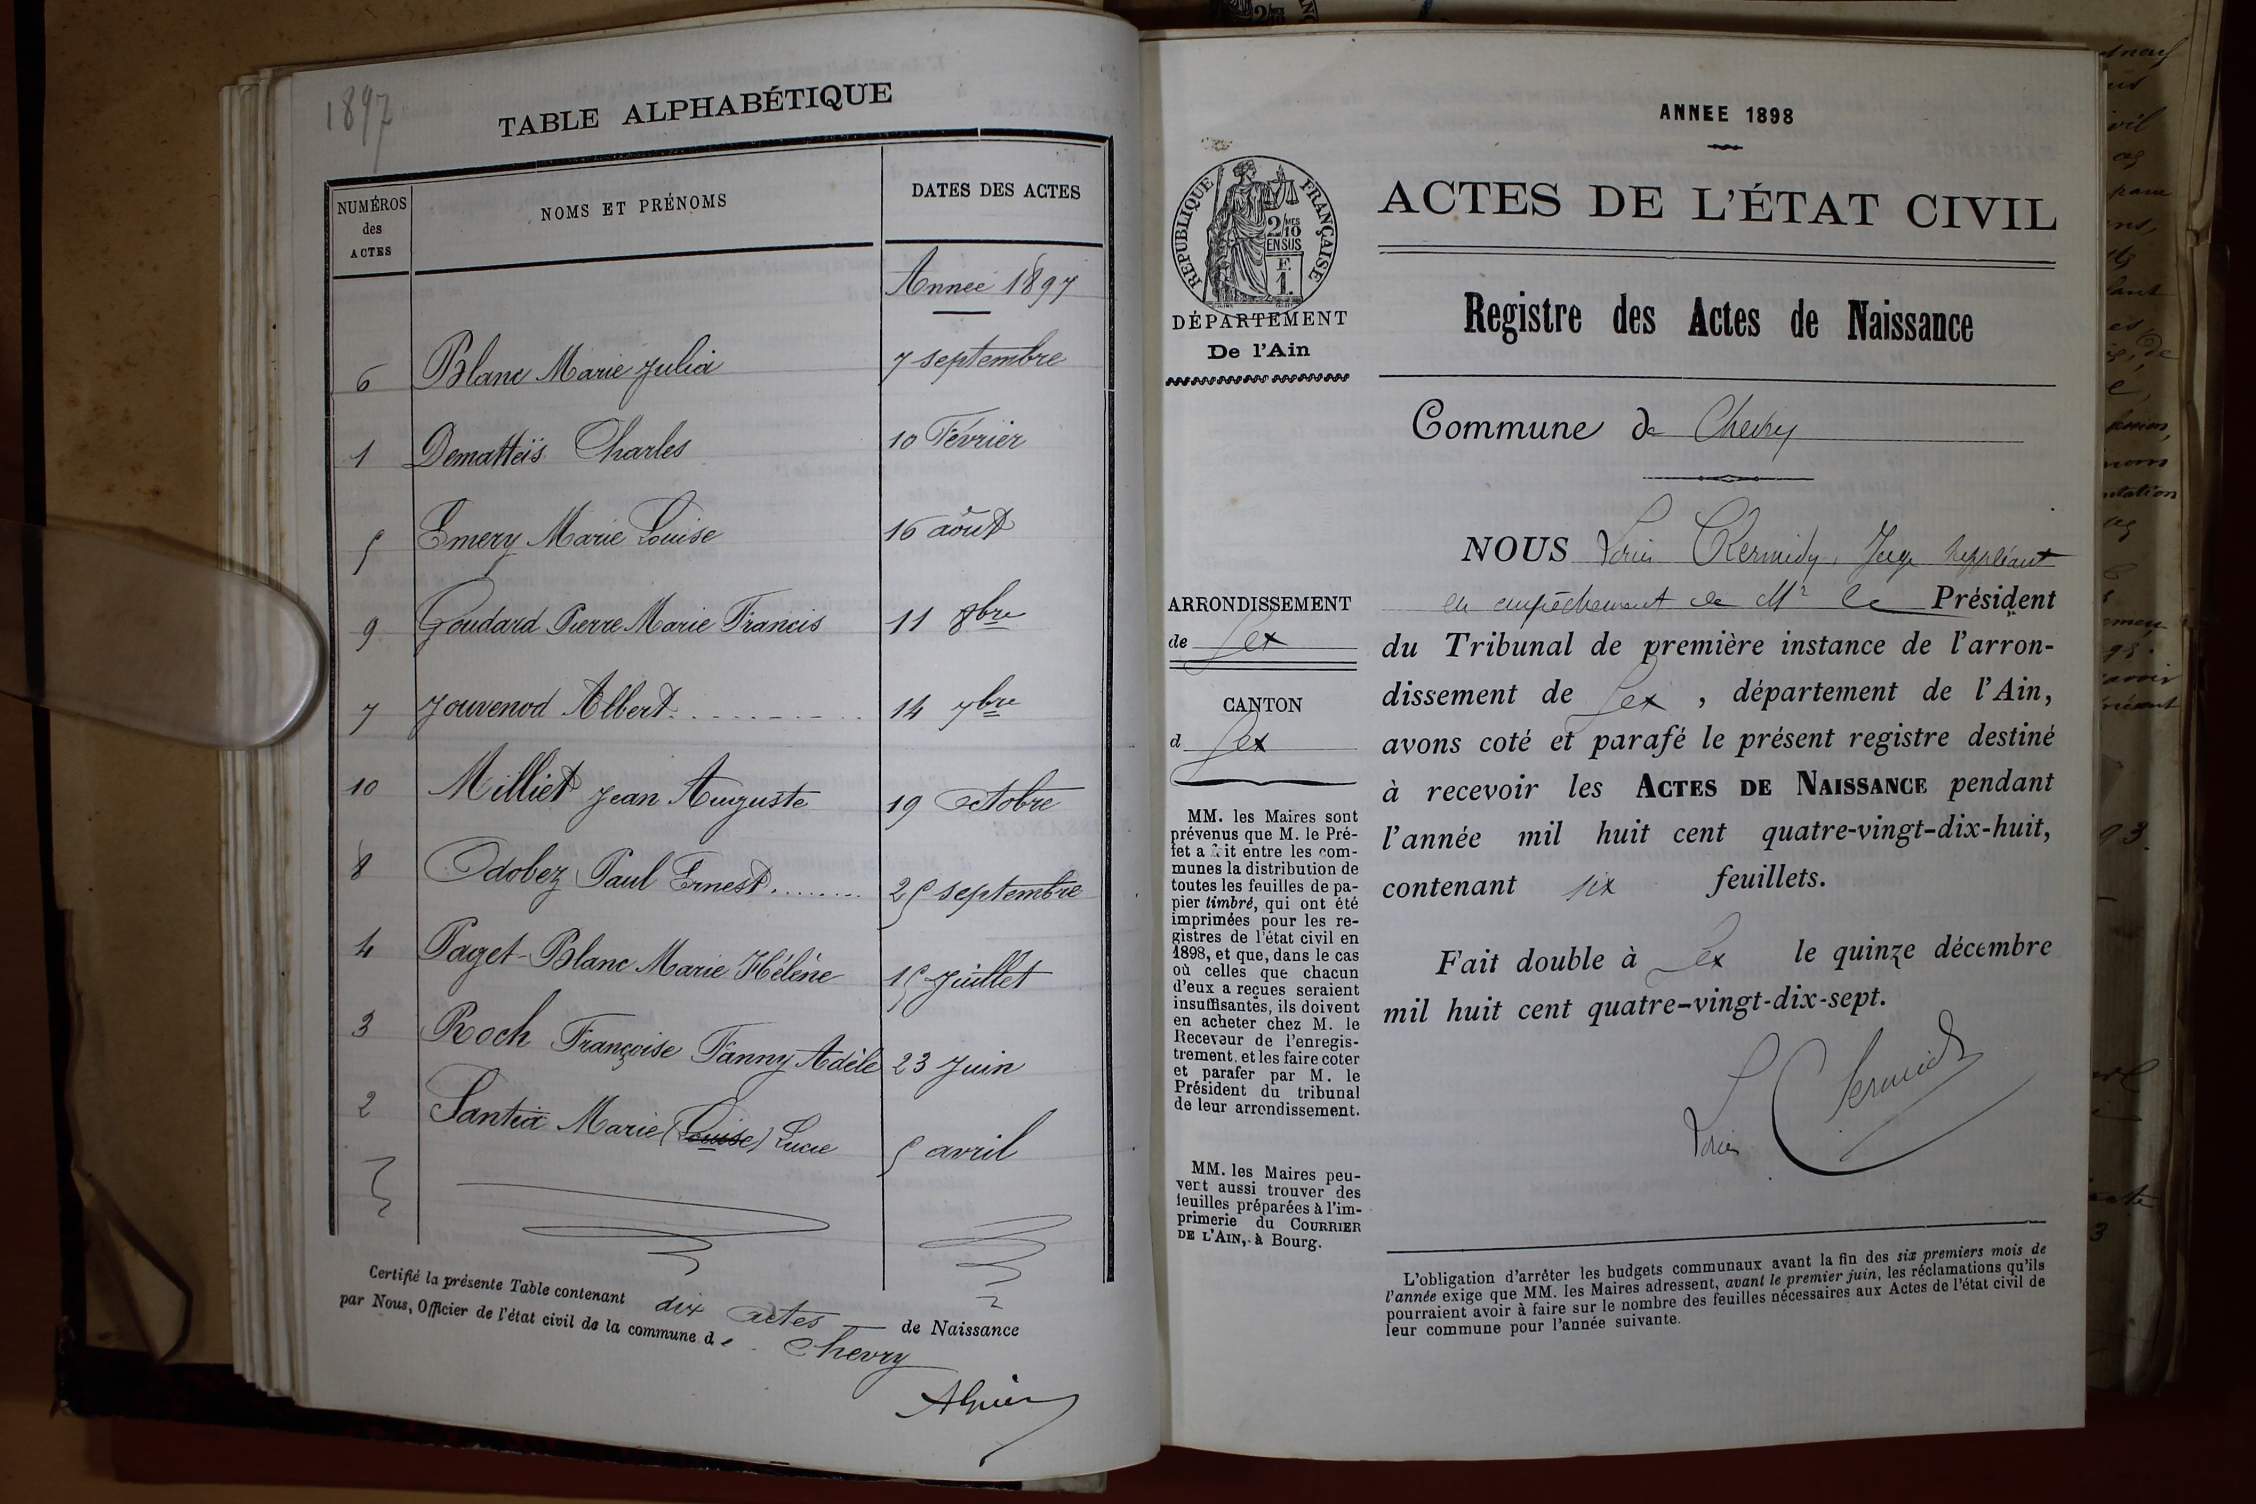 1897
TABLE ALPHABÉTIQUE
NUMÉROS des ACTES
NOMS ET PRÉNOMS
DATES DES ACTES
Année 1897
6 Blanc Marie Julia 7 septembre
1 Dematteïs Charles 10 Février
5 Emery Marie Louise 16 août
9 Goudard Pierre Marie Francis 11 8bre
7 Jouvenod Albert 14 7bre
10 Milliet Jean Auguste 19 octobre
8 Odobez Paul Ernest 25 septembre
4 Paget-Blanc Marie Hélène 15 Juillet
3 Roch Françoise Fanny Adèle 23 Juin
2 Santia Marie (Louise) Lucie 5 avril
Certifié la présente Table contenant dix actes de Naissance
par Nous, Officier de l'état civil de la commune de Chevry
ANNEE 1898
RÉPUBLIQUE FRANÇAISE
2/10 MES
EN SUS
F.
1.
DÉPARTEMENT
De l'Ain
ACTES DE L'ÉTAT CIVIL
Registre des Actes de Naissance
Commune de Chevry
ARRONDISSEMENT
de Gex
CANTON
d Gex
MM. les Maires sont
prévenus que M. le Pré-
fet a fait entre les com-
munes la distribution de
toutes les feuilles de pa-
pier timbré, qui ont été
imprimées pour les re-
gistres de l'état civil en
1898, et que, dans le cas
où celles que chacun
d'eux a reçues seraient
insuffisantes, ils doivent
en acheter chez M. le
Receveur de l'enregis-
trement, et les faire coter
et parafer par M. le
Président du tribunal
de leur arrondissement.
MM. les Maires peu-
vent aussi trouver des
feuilles préparées à l'im-
primerie du COURRIER
DE L'AIN, à Bourg.
NOUS Louis Chermidy, Juge suppléant
en empêchement de Mr le Président
du Tribunal de première instance de l'arron-
dissement de Gex, département de l'Ain,
avons coté et parafé le présent registre destiné
à recevoir les ACTES DE NAISSANCE pendant
l'année mil huit cent quatre-vingt-dix-huit,
contenant six feuillets.
Fait double à Gex le quinze décembre
mil huit cent quatre-vingt-dix-sept.
L'obligation d'arrêter les budgets communaux avant la fin des six premiers mois de
l'année exige que MM. les Maires adressent, avant le premier juin, les réclamations qu'ils
pourraient avoir à faire sur le nombre des feuilles nécessaires aux Actes de l'état civil de
leur commune pour l'année suivante.